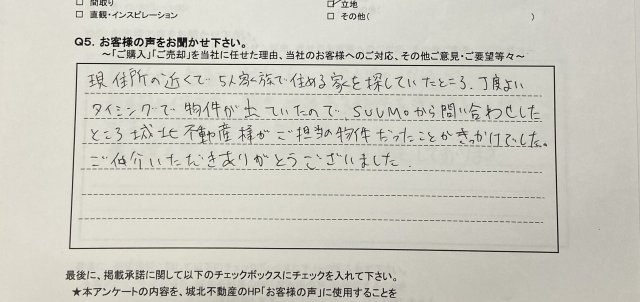 □ 間取り
☑ 立地
□ 直観・インスピレーション
□ その他(　　　)
Q5. お客様の声をお聞かせ下さい。
～「ご購入」「ご売却」を当社に任せた理由、当社のお客様へのご対応、その他ご意見・ご要望等々～
現住所の近くで5人家族で住める家を探していたところ、丁度よい
タイミングで物件が出ていたので、SUUMOから問い合わせした
ところ城北不動産様がご担当の物件だったことがきっかけでした。
ご仲介いただきありがとうございました.
最後に、掲載承諾に関して以下のチェックボックスにチェックを入れて下さい。
★本アンケートの内容を、城北不動産のHP「お客様の声」に使用することを